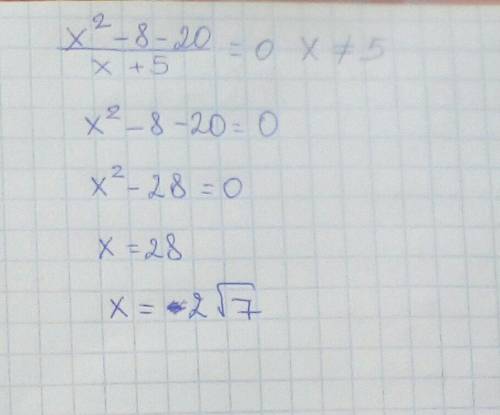 x² - 8 - 20 / x + 5 = 0 x ≠ 5
x² - 8 - 20 = 0
x² - 28 = 0
x = 28
x = 2√7